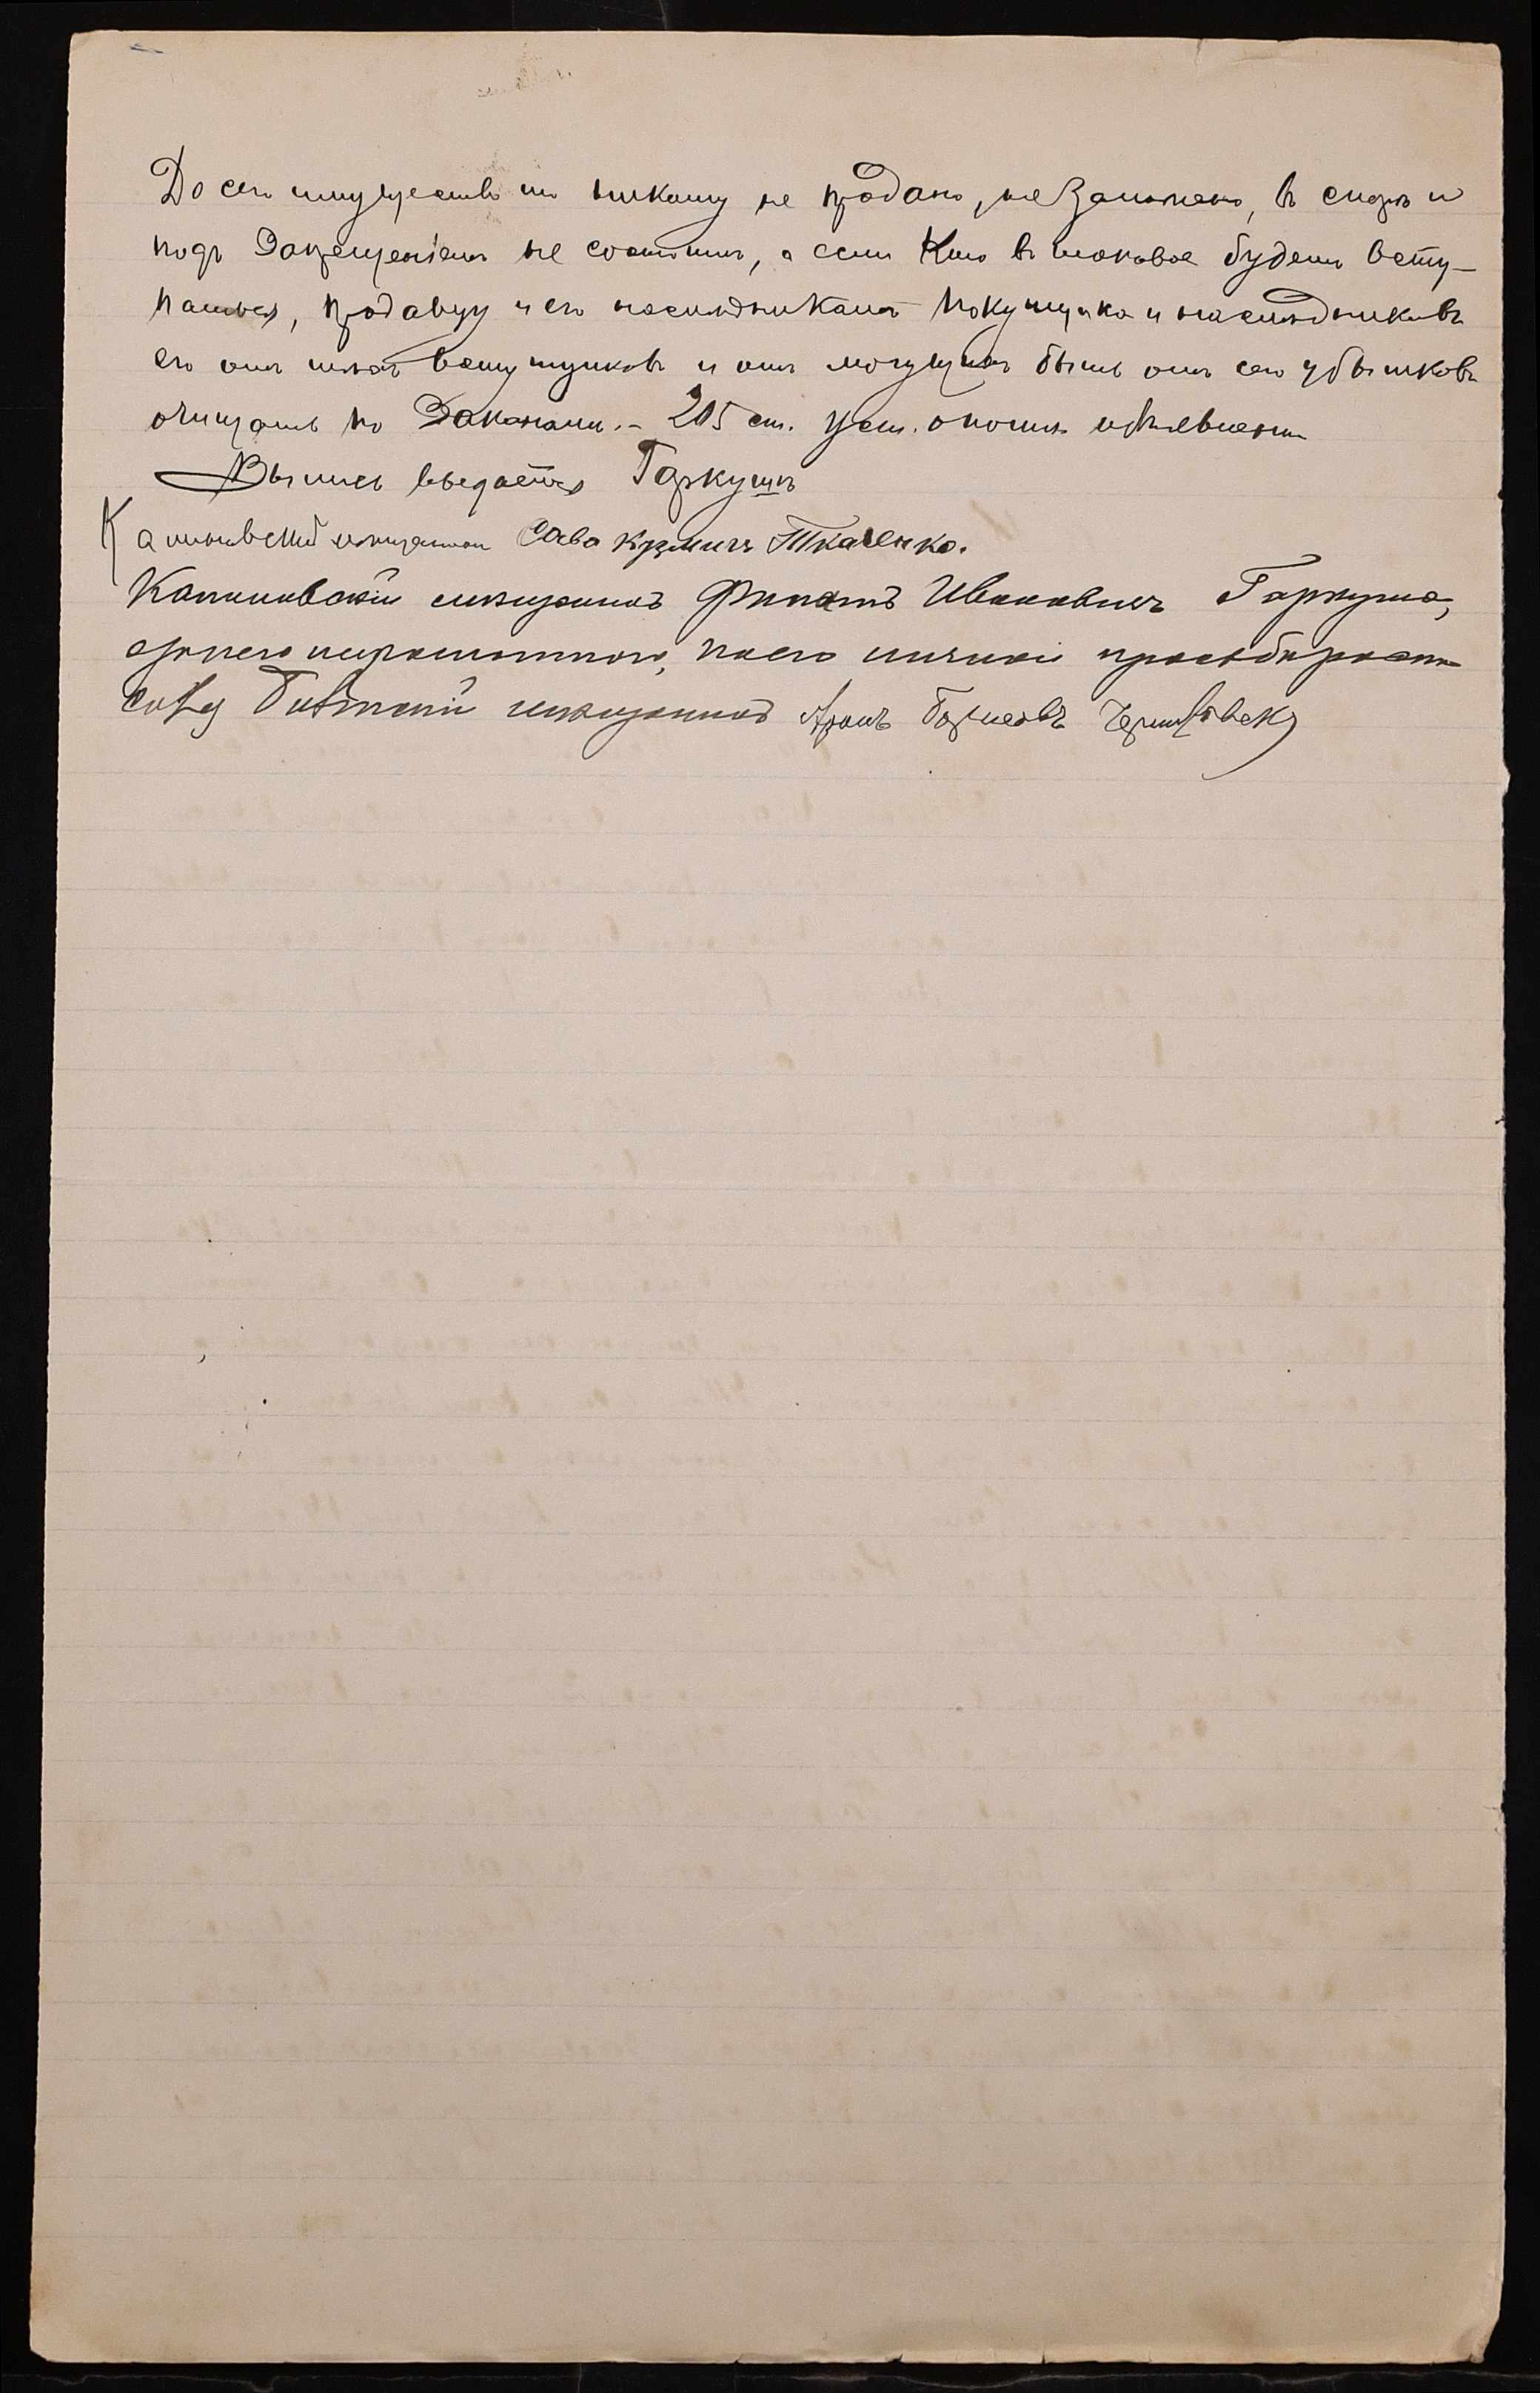 До сего имущество никому не продано, не заложено, въ спорѣ и
подъ запрещенiемъ не состоитъ, а если кто въ таковое будетъ всту-
паться, продавцу и его наслѣдникамъ покупщика и наслѣдниковъ
его отъ тѣхъ вступщиковъ и отъ могущихъ быть отъ сего убытковъ
очищать по законамъ. – 205 ст. уст. о пошл. объявлена
Выпись выдается Гаркушѣ
мѣщанин Сава Кузмичъ Ткаченко.
мѣщанинъ Филипъ Ивановичъ Гаркуша,
а за него неграмотного, по его личной просьбѣ распи
сался мѣщанинъ Аронъ